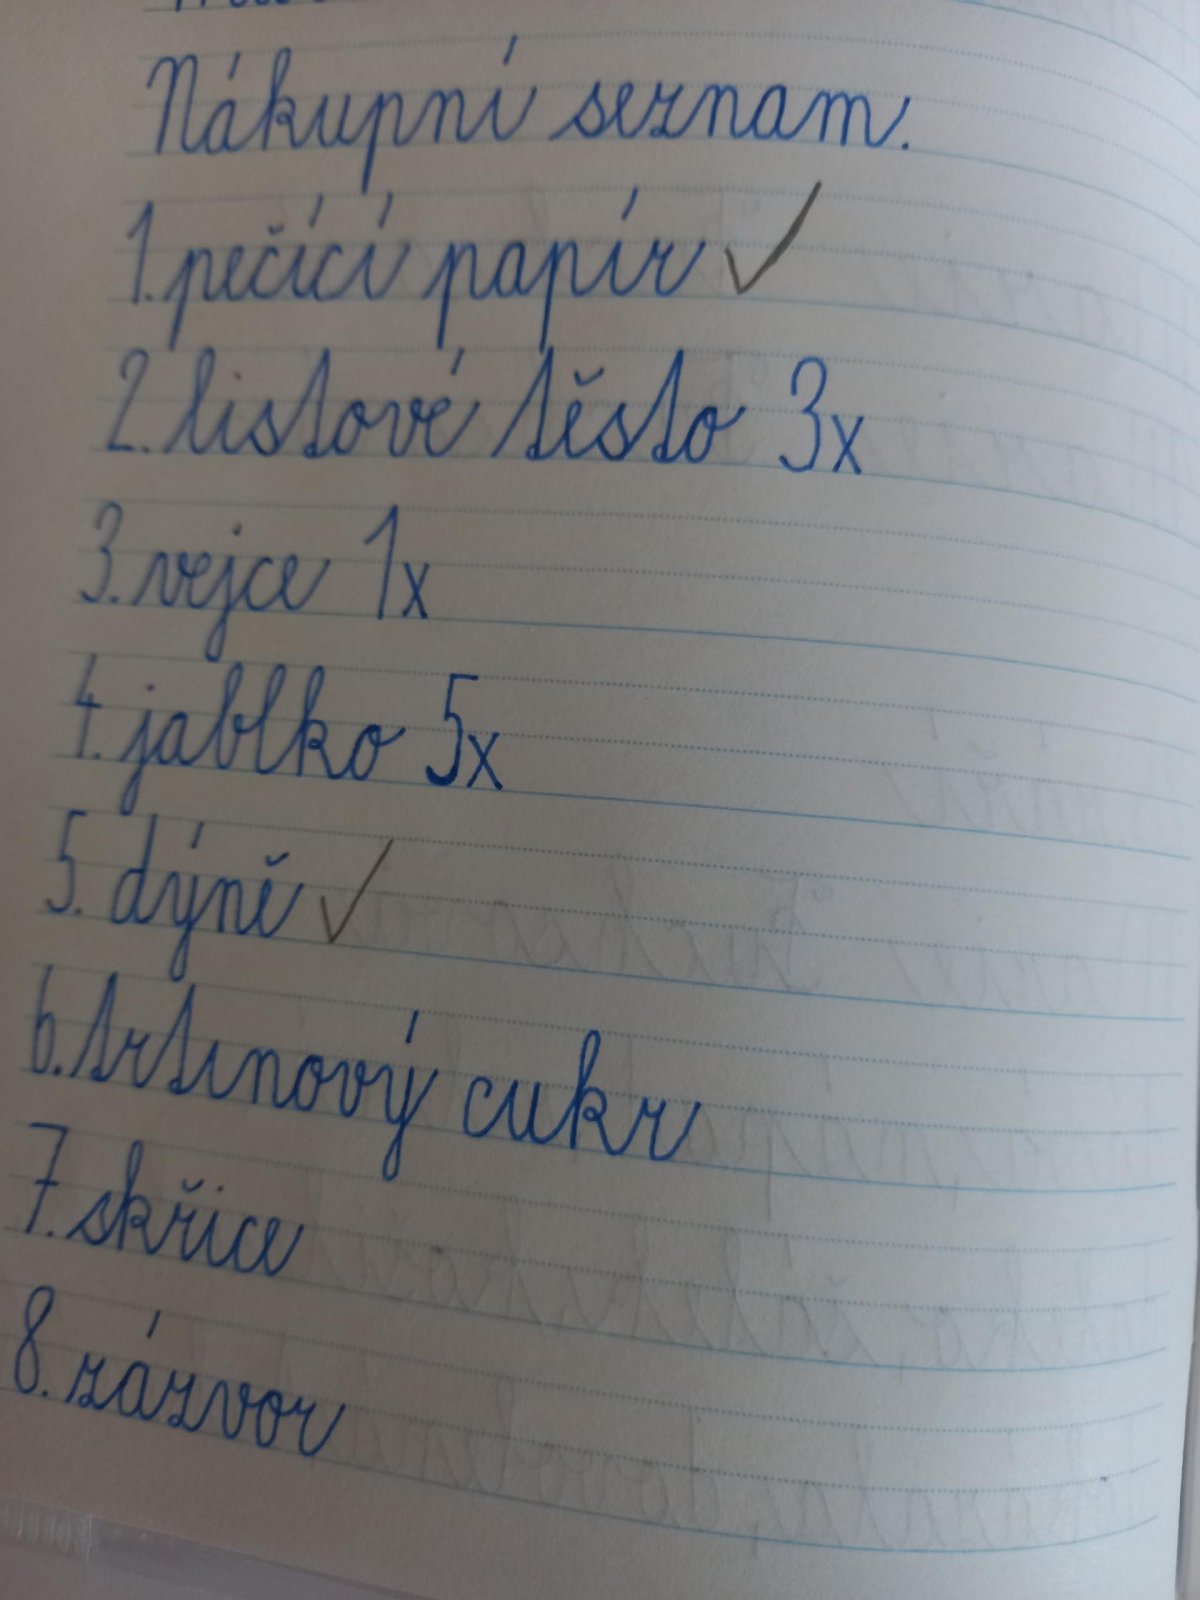 Nákupní seznam.
1. pečící papír ✓
2. listové těsto 3x
3. vejce 1x
4. jablko 5x
5. dýně ✓
6. třtinový cukr
7. skřice
8. zázvor